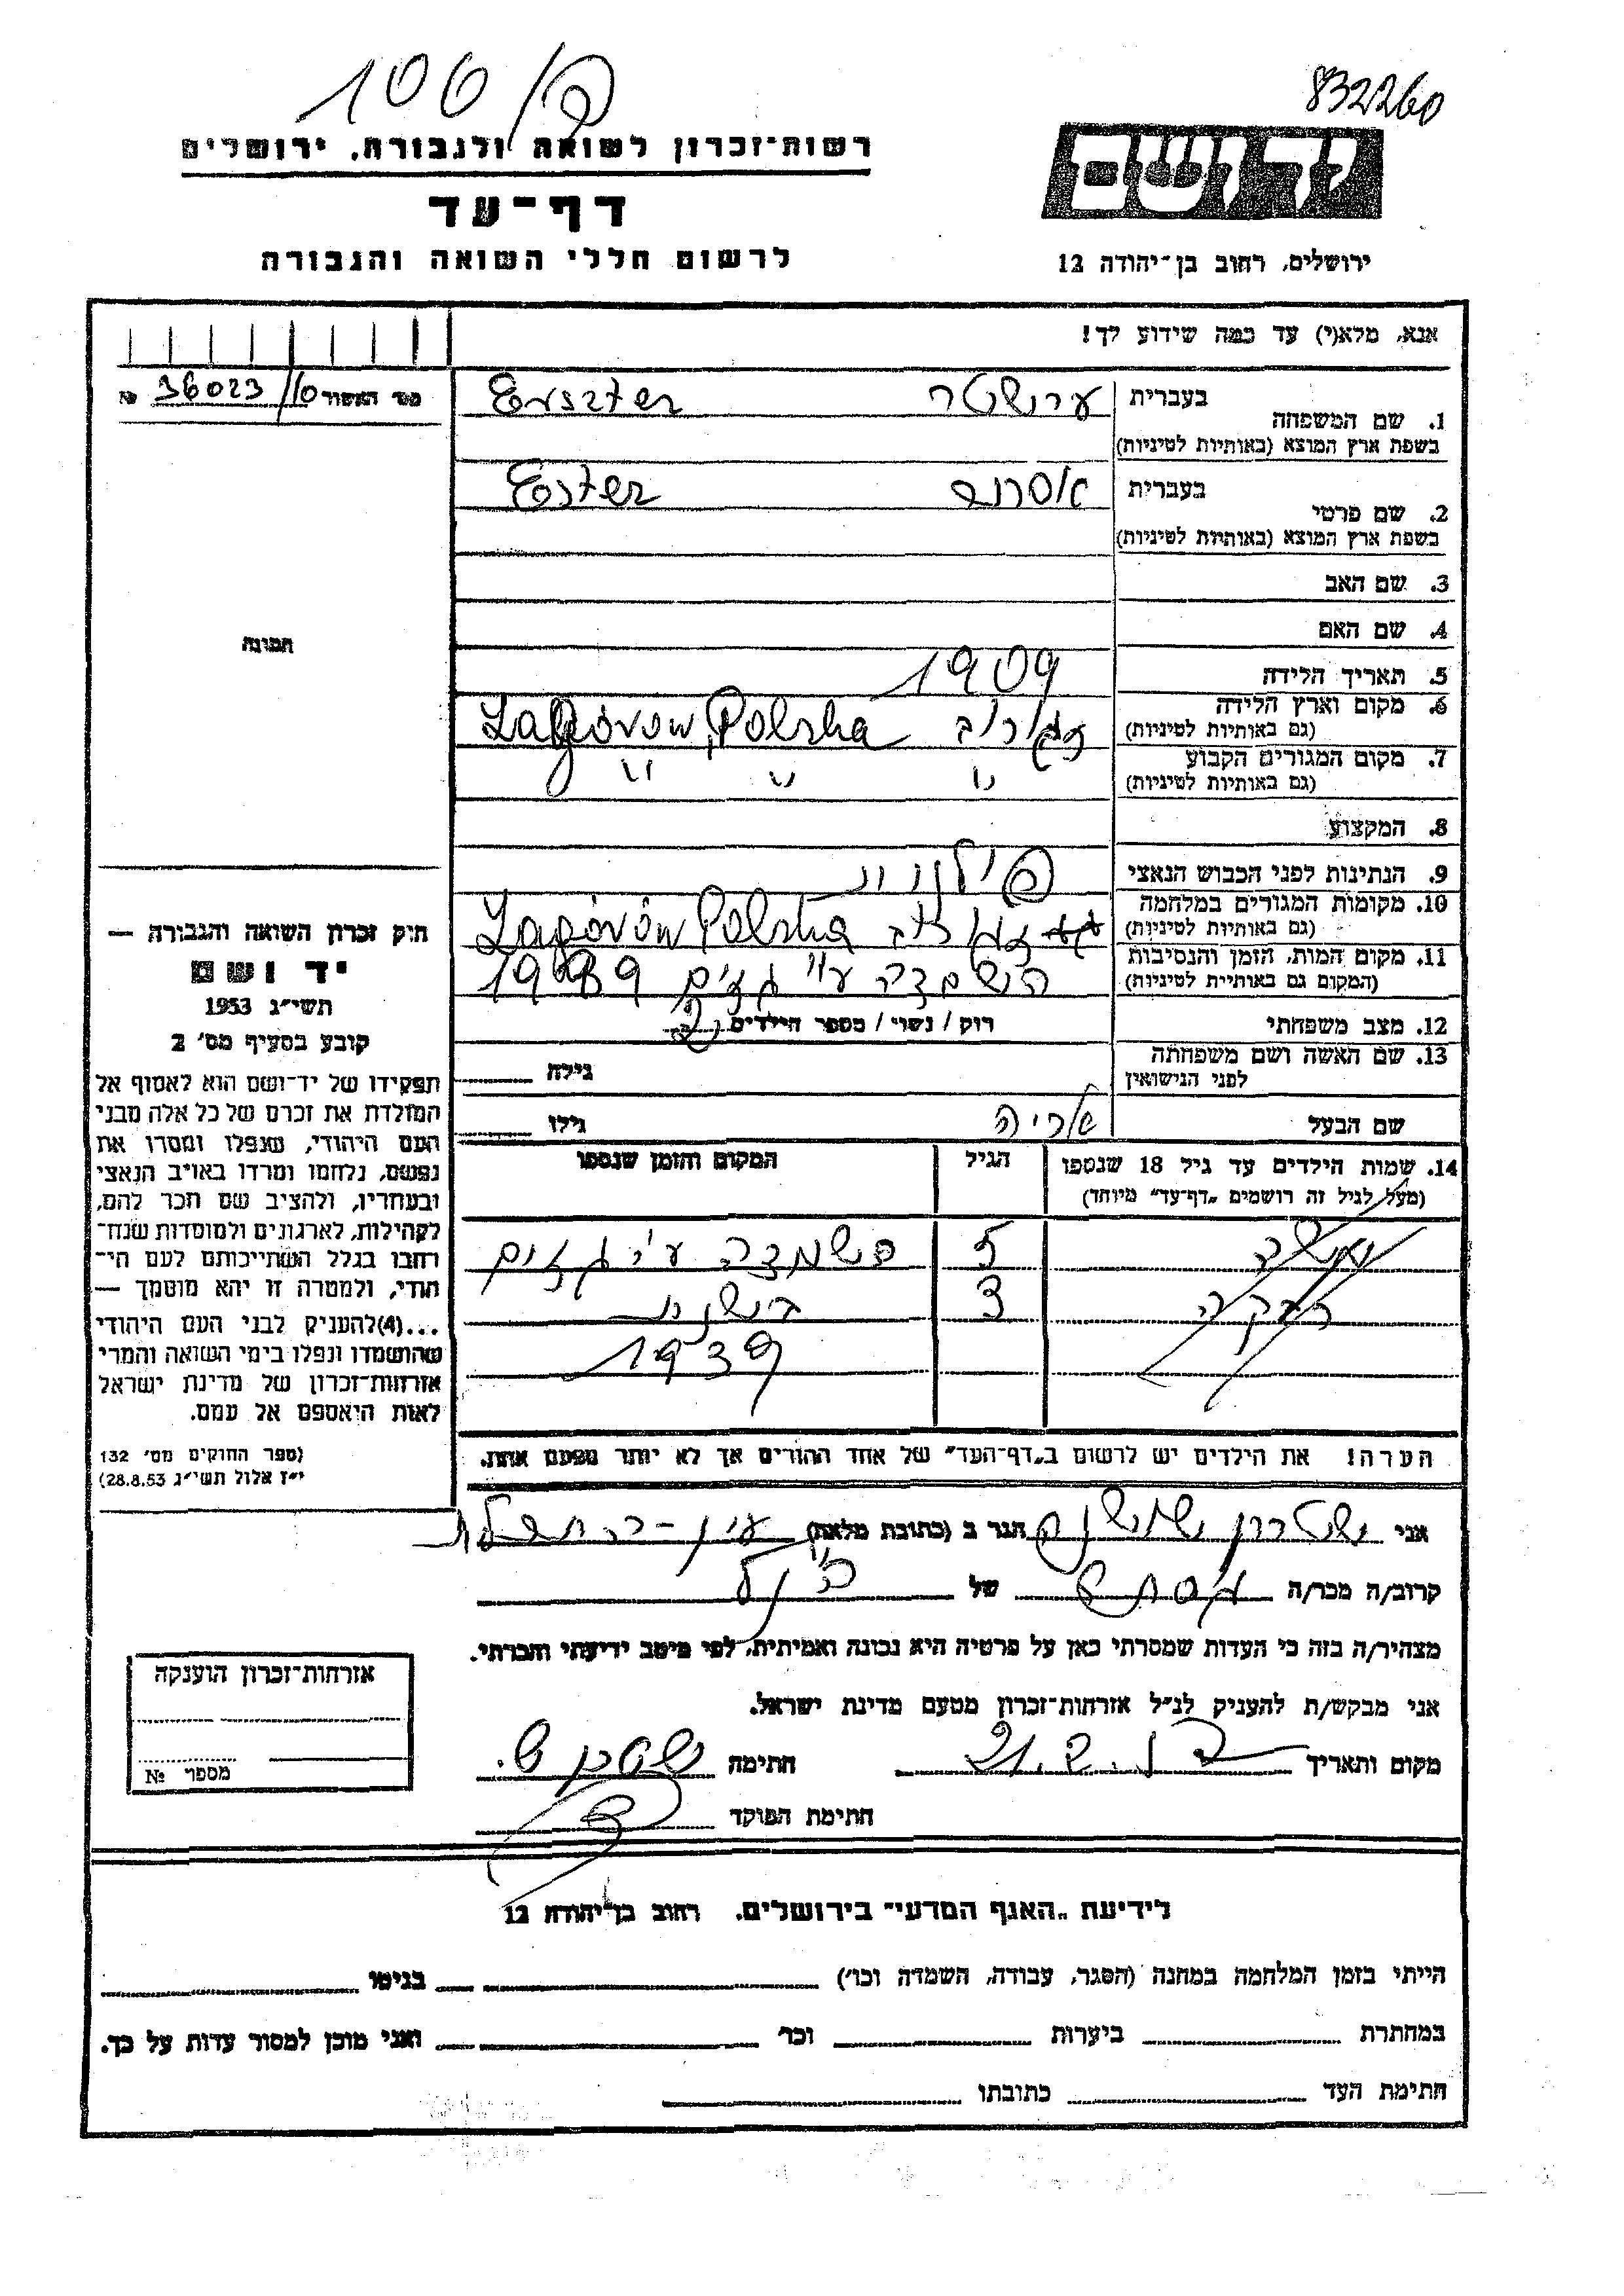 106/פ
832260
רשות־זכרון לשואה ולגבורה, ירושלים
ידושם
דף־עד
לרשום חללי השואה והגבורה
ירושלים, רחוב בן־יהודה 12
אנא, מלא(י) עד כמה שידוע לך!
מס' האשור 36023/10 №
1. שם המשפחה
בעברית ערשטר Erszter
בשפת ארץ המוצא (באותיות לטיניות)
2. שם פרטי
בעברית אסתר Ester
בשפת ארץ המוצא (באותיות לטיניות)
3. שם האב
4. שם האם
תמונה
5. תאריך הלידה 1909
6. מקום וארץ הלידה Zagórów, Polska
(גם באותיות לטיניות)
7. מקום המגורים הקבוע " " "
(גם באותיות לטיניות)
8. המקצוע
9. הנתינות לפני הכבוש הנאצי פולנית
10. מקומות המגורים במלחמה Zagórów Polska
(גם באותיות לטיניות)
11. מקום המות, הזמן והנסיבות הושמדה ע"י גזים 1939
(המקום גם באותיות לטיניות)
12. מצב משפחתי רוק / נשוי / מספר הילדים 2
13. שם האשה ושם משפחתה גילה
לפני הנישואין
שם הבעל אריה גילו
14. שמות הילדים עד גיל 18 שנספו הגיל המקום והזמן שנספו
(מעל לגיל זה רושמים „דף־עד" מיוחד)
5 השמדה ע"י גזים
רבקה 3 בשנת
1939
הערה! את הילדים יש לרשום ב„דף־העד" של אחד ההורים אך לא יותר מפעם אחת.
חוק זכרון השואה והגבורה —
יד ושם
תשי"ג 1953
קובע בסעיף מס' 2
תפקידו של יד־ושם הוא לאסוף אל
המולדת את זכרם של כל אלה מבני
העם היהודי, שנפלו ומסרו את
נפשם, נלחמו ומרדו באויב הנאצי
ובעוזריו, ולהציב שם וזכר להם,
לקהילות, לארגונים ולמוסדות שנח־
רבו בגלל השתייכותם לעם הי־
הודי, ולמטרה זו יהא מוסמך —
...(4)להעניק לבני העם היהודי
שהושמדו ונפלו בימי השואה והמרי
אזרחות־זכרון של מדינת ישראל
לאות היאספם אל עמם.
(ספר החוקים מס' 132
י"ז אלול תשי"ג 28.8.53)
אני הגר ב (כתובת מלאה)
קרוב/ה מכר/ה של הנ"ל
מצהיר/ה בזה כי העדות שמסרתי כאן על פרטיה היא נכונה ואמיתית, לפי מיטב ידיעתי והכרתי.
אני מבקש/ת להעניק לנ"ל אזרחות־זכרון מטעם מדינת ישראל.
מקום ותאריך חתימה
חתימת הפוקד
אזרחות־זכרון הוענקה
מספר №
לידיעת „האגף המדעי" בירושלים, רחוב בן־יהודה 12
הייתי בזמן המלחמה במחנה (הסגר, עבודה, השמדה וכו') בגיטו
במחתרת ביערות וכו' ואני מוכן למסור עדות על כך.
חתימת העד כתובתו